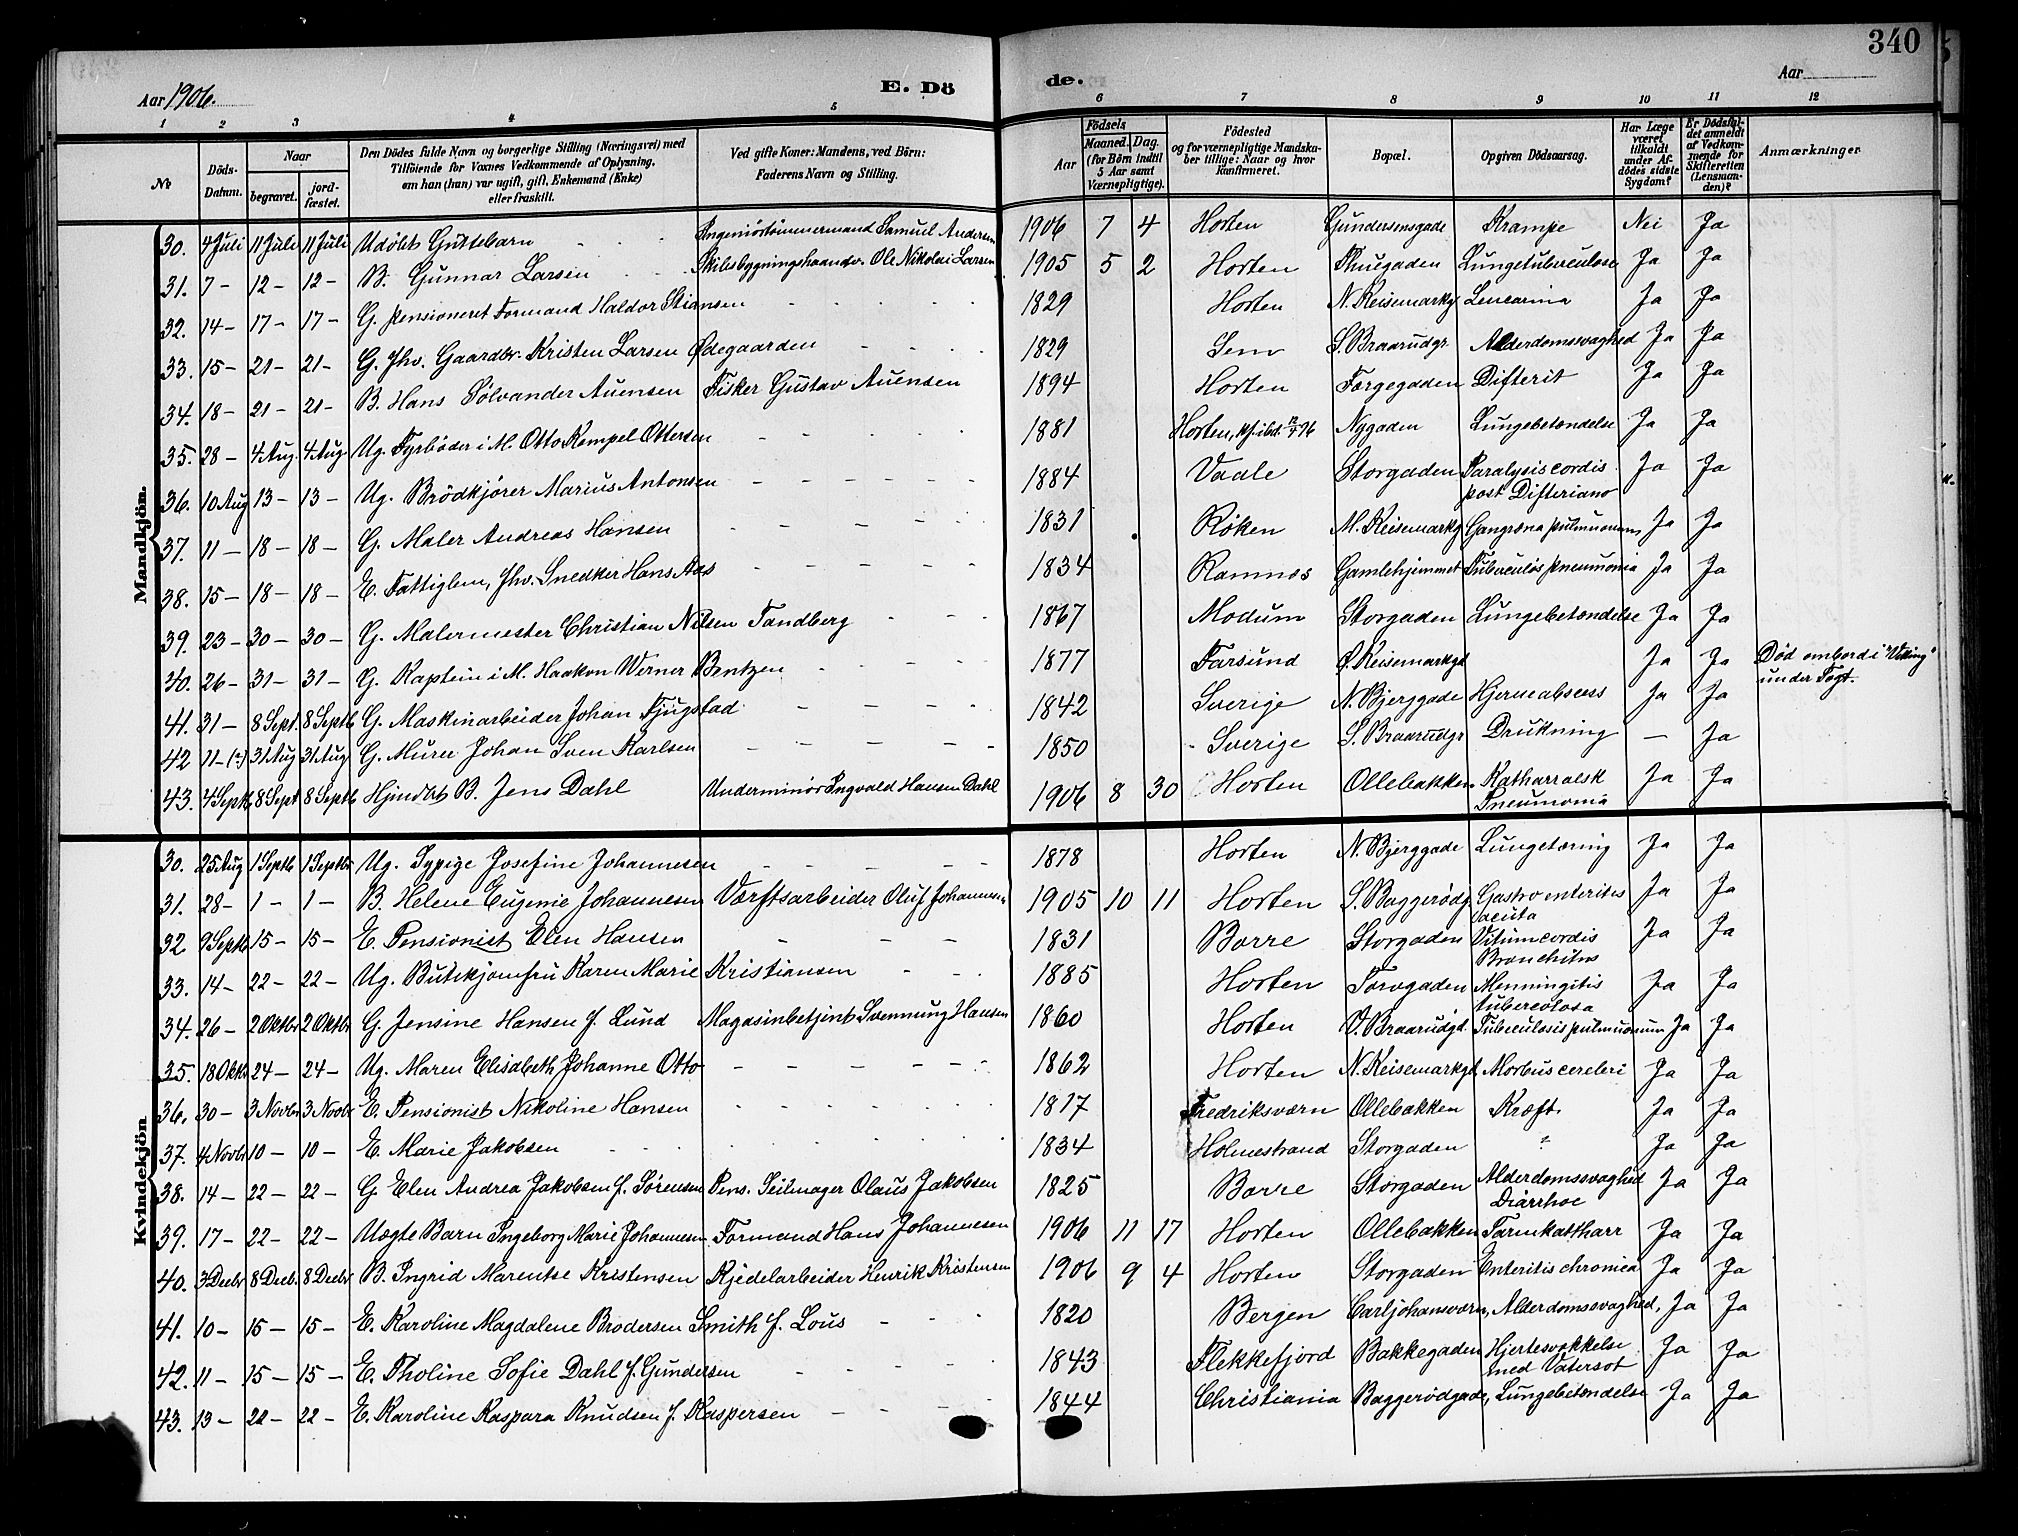 340
Aar 1906.
E. Dö de.
Aar
1 2 3 4 5 6 7 8 9 10 11 12
№
Döds-Datum.
Naar
begravet.
jord-fæstet.
Den Dödes fulde Navn og borgerlige Stilling (Næringsvei) med Tilföiende for Voxnes Vedkommende af Oplysning, om han (hun) var ugift, gift, Enkemand (Enke) eller fraskilt.
Ved gifte Koner: Mandens, ved Börn: Faderens Navn og Stilling.
Födsels
Aar
Maaned.
Dag.
(for Börn indtil 5 Aar samt Værnepligtige).
Födested og for værnepligtige Mandskaber tillige: Naar og hvor konfirmeret.
Bopæl.
Opgiven Dödsaarsag.
Har Læge været tilkaldt under Afdödes sidste Sygdom?
Er Dödsfaldet anmeldt af Vedkommende for Skifteretten (Lensmanden)?
Anmærkninger
Mandkjön.
30. 4 Juli 11 Juli 11 Juli Udöbt Guttebarn - - - Ingeniörtömmermand Samuel Andersen 1906 7 4 Horten Gundersensgade Krampe Nei Ja
31. 7 - 12 - 12 - B. Gunnar Larsen - - Skibsbygningshaandv. Ole Nikolai Larsen 1905 5 2 Horten Thuegaden Lungetuberculose Ja Ja
32. 14 - 17 - 17 - G. pensioneret Formand Haldor Stiansen - - - 1829 Horten N. Keisemarkg Ja Ja
33. 15 - 21 - 21 - G. fhv. Gaardbr. Kristen Larsen Ødegaarden - - - 1829 Sem S. Braarudgr. Alderdomssvaghed Ja Ja
34. 18 - 21 - 21 - B. Hans Sölvander Auensen Fisker Gustav Auensen 1894 Horten Torgegaden Difterit Ja Ja
35. 28 - 4 Aug. 4 Aug. Ug. Fyrböder i M. Otto Kempel Ottersen - - - 1881 Horten, Nygaden Lungebetændelse Ja Ja
36. 10 Aug 13 - 13 - Ug. Brödkjörer Marius Antonsen - - - 1884 Vaale Storgaden Paralysis cordis post Difteriano Ja Ja
37. 11 - 18 - 18 - G. Maler Andreas Hansen - - - 1831 Röken M. Keisemarkg Gangræna pulmuonum Ja Ja
38. 15 - 18 - 18 - E. Fattiglem, fhv. Snedker Hans Aas - - - 1834 Ramnes Gamlehjemmet Tuberculös pneumonia Ja Ja
39. 23 - 30 - 30 - G. Malermester Christian Nilsen Tandberg - - - 1867 Modum Storgaden Lungebetændelse Ja Ja
40. 26 - 31 - 31 - G. Kaptein i M. Haakon Werner Bentzen - - - 1877 Farsund Ø. Keisemarkgd Ja Ja Död ombord i "Viking" under Togt.
41. 31 - 8 Sept. 8 Septb G. Maskinarbeider Johan Fjugstad - - - 1842 Sverige N. Bjerggade Hjerneabscess Ja Ja
42 11 - (?) 31 Aug 31 Aug G. Murer Johan Sven Karlsen - - - 1850 Sverige S. Braarudgr Drukning - Ja
43. 4 Septb 8 Sept 8 Septb Hjmdbt B. Jens Dahl Underminör Ingvald Hansen Dahl 1906 8 30 Horten Ollebakken Katharralsk Pneumonia Ja Ja
Kvindekjön
30. 25 Aug 1 Septb 1 Septbr Ug. Sypige Josefine Johannesen - - - 1878 Horten N. Bjerggade Lungetæring Ja Ja
31. 28 - 1 - 1 - B. Helene Eugenie Johannesen Værftsarbeider Oluf Johannesen 1905 10 11 Horten S. Baggerödg Gastro enterites acuta Ja Ja
32 9 Septb 15 - 15 - E. Pensionist Elen Hansen - - - 1831 Borre Storgaden Vitum cordis Bronchitus Ja Ja
33. 14 - 22 - 22 - Ug. Butikjomfru Karen Marie Kristiansen - - 1885 Horten Torvgaden Menningitis tubercolosa Ja Ja
34. 26 - 2 Oktbr 2 Oktbr G. Jensine Hansen f. Lund Magasinbetjent Svenning Hansen 1860 Horten V. Braarudgd. Tuberculosis pulmuonum Ja Ja
35. 18 Oktb 24 - 24 - Ug. Maren Elisabeth Johanne Otto - - - 1862 Horten N. Keisemarkgd Morbus cereberi Ja Ja
36. 30 - 3 Novbr 3 Novbr E. Pensionist Nikoline Hansen - - - 1817 Fredriksværn Ollebakken Kræft. Ja Ja
37. 4 Novbr 10 - 10 - E. Marie Jakobsen - - - 1834 Holmestrand Storgaden ? Ja Ja
38. 14 - 22 - 22 - G. Elen Andrea Jakobsen f. Sörensen Pens. Seilmager Olaus Jakobsen 1825 Borre Storgaden Alderdomssvaghed Diarrhoe Ja Ja
39. 17 - 22 - 22 - Uægte Barn Ingeborg Marie Johannesen Formand Hans Johannesen 1906 11 17 Horten Ollebakken Tarmkattharr Ja Ja
40. 3 Decbr 8 Decb. 8 Decbr B. Ingrid Marentse Kristensen Kjedelarbeider Henrik Kristensen 1906 9 4 Horten Storgaden Enteritis chronica Ja Ja
41. 10 - 15 - 15 - E. Karoline Magdalene Brodersen Smith f. Lous - - - 1820 Bergen Carljohansværn, Alderdomssvaghed, Ja Ja
42. 11 - 15 - 15 - E. Tholine Sofie Dahl f. Gundersen - - - 1843 Flekkefjord Bakkegaden Hjertesvækkelse med Vatersot Ja Ja
43. 13 - 22 - 22 - E. Karoline Kaspara Knudsen f. Kaspersen - - - 1844 Christiania Baggerödgade, Lungebetændelse Ja Ja